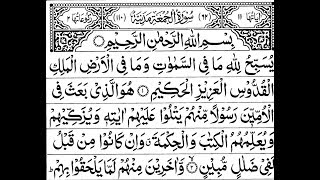 اٰیَاتُهَا ١١ (٦٢) سُوْرَةُ الْجُمُعَةِ مَدَنِيَّةٌ (١١٠) رُكُوْعَاتُهَا ٢
بِسْمِ اللّٰهِ الرَّحْمٰنِ الرَّحِيْمِ
يُسَبِّحُ لِلّٰهِ مَا فِي السَّمٰوٰتِ وَمَا فِي الْاَرْضِ الْمَلِكِ
الْقُدُّوْسِ الْعَزِيْزِ الْحَكِيْمِ ۝١ هُوَ الَّذِيْ بَعَثَ فِي
الْاُمِّيّٖنَ رَسُوْلًا مِّنْهُمْ يَتْلُوْا عَلَيْهِمْ اٰيٰتِهٖ وَيُزَكِّيْهِمْ
وَيُعَلِّمُهُمُ الْكِتٰبَ وَالْحِكْمَةَ وَاِنْ كَانُوْا مِنْ قَبْلُ
لَفِيْ ضَلٰلٍ مُّبِيْنٍ ۝٢ وَّاٰخَرِيْنَ مِنْهُمْ لَمَّا يَلْحَقُوْا بِهِمْ ط